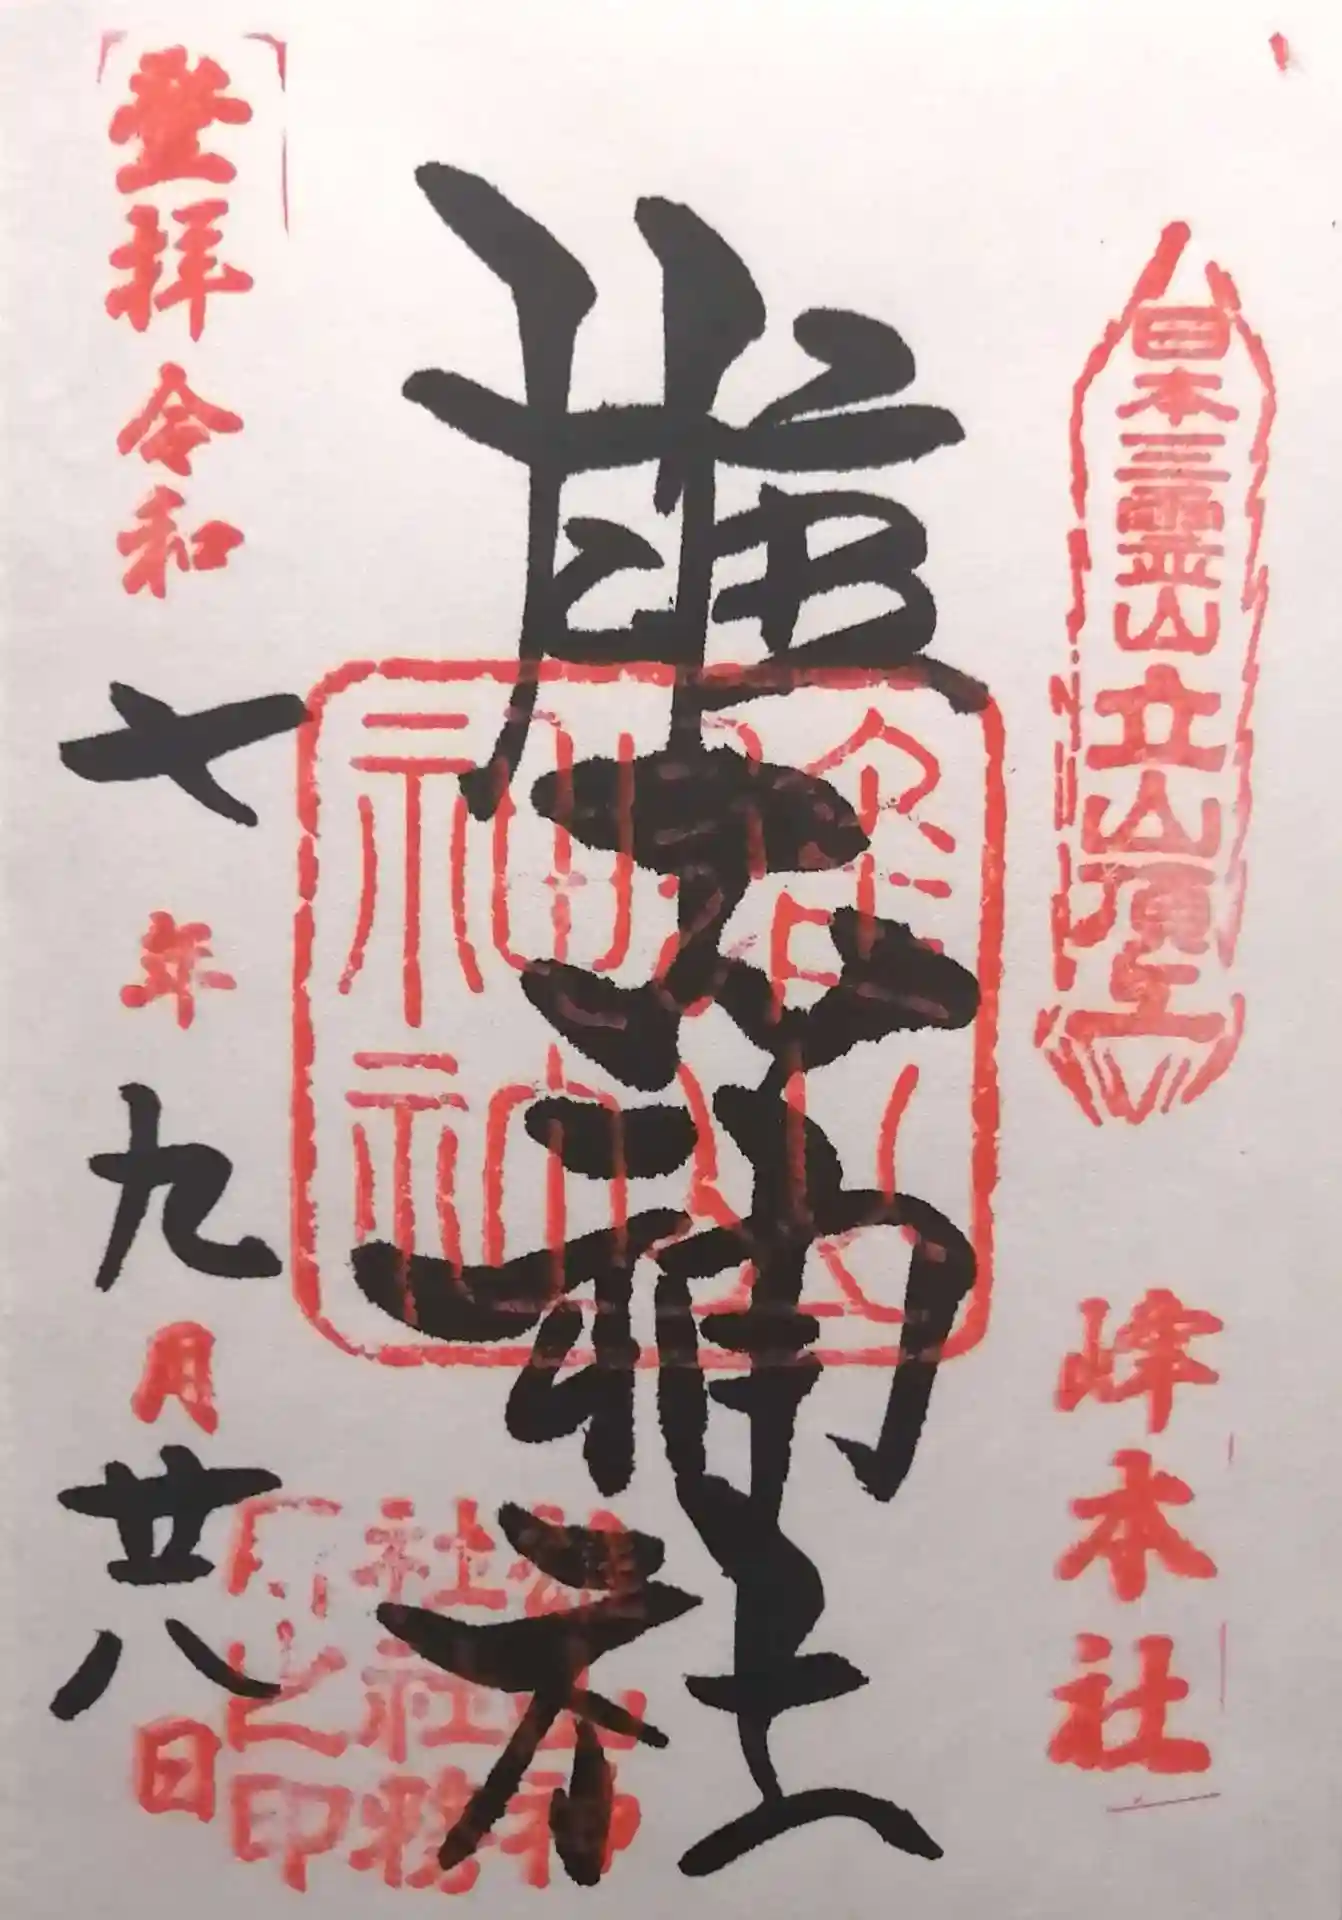 日本三霊山立山頂上
峰本社
雄山神社
雄山神社
雄山神
社社務
所之印
登拝令和七年九月廿八日